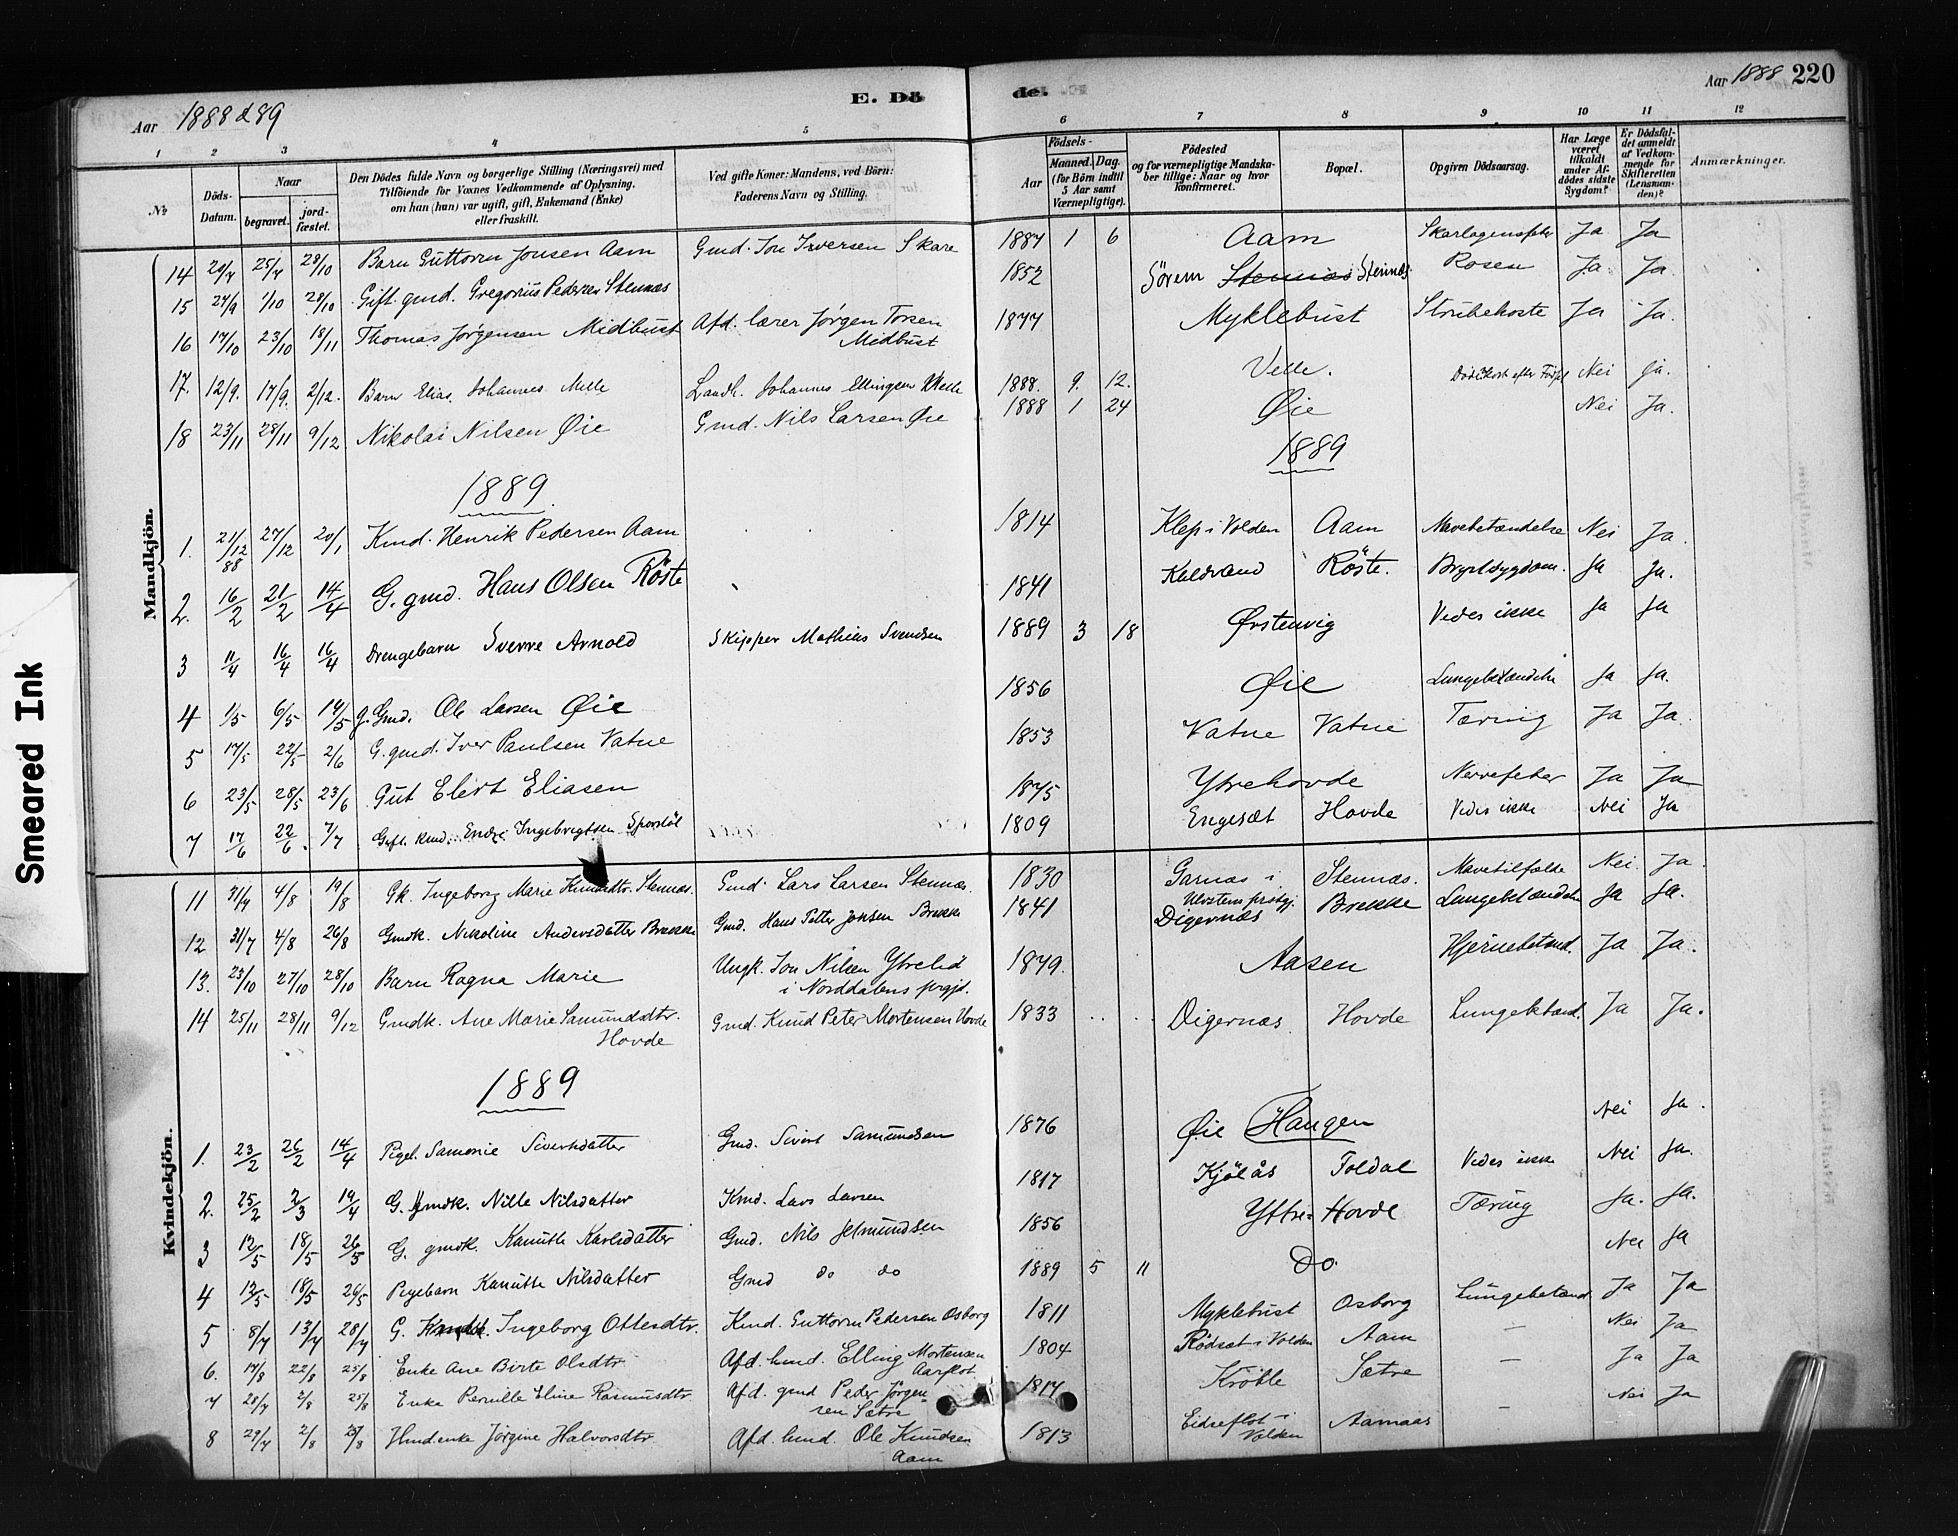 Aar 1888 & 89
E. Dö
de.
Aar 1888 220
1 2 3 4 5 6 7 8 9 10 11 12
№
Döds-Datum.
Naar
begravet.
jord-fæstet.
Den Dödes fulde Navn og borgerlige Stilling (Næringsvei) med
Tilföiende for Voxnes Vedkommende af Oplysning,
om han (hun) var ugift, gift, Enkemand (Enke)
eller fraskilt.
Ved gifte Koner: Mandens, ved Börn:
Faderens Navn og Stilling.
Födsels-
Aar
Maaned. Dag.
(for Börn indtil
5 Aar samt
Værnepligtige).
Födested
og for værnepligtige Mandska-
ber tillige: Naar og hvor
konfirmeret.
Bopæl.
Opgiven Dödsaarsag.
Har Læge
været
tilkaldt
under Af-
dödes sidste
Sygdom?
Er Dödsfal-
det anmeldt
af Vedkom-
mende for
Skifteretten
(Lensman-
den)?
Anmærkninger.
Mandkjön.
14 20/7 25/7 28/10 Barn Guttorm Jonsen Aam Gmd. Jon Iversen Skare 1887 1 6 Aam Skarlagensfeber Ja Ja
15 27/9 1/10 28/10 Gift gmd. Gregorius Pedersen Stennæs 1852 Sørem Stennæs Stennæs Rosen Ja Ja
16 17/10 23/10 18/11 Thomas Jørgensen Midbust Afd. lærer Jørgen Torsen
Midbust 1877 Myklebust Strubehoste Ja Ja.
17. 12/9. 17/9. 2/12. Barn Elias Johannes Melle Landh. Johannes Ellingsen Melle 1888. 9. 12. Velle. Død kort efter Fødsl Nei Ja.
18 23/11 28/11 9/12 Nikolai Nilsen Øie Gmd. Nils Larsen Øie 1888 1 24 Øie Nei Ja.
1889. 1889
1. 21/12 88 27/12 20/1 Kmd. Henrik Pedersen Aam 1814 Klep i Volden Aam Mavebetændelse Nei Ja.
2. 16/2 21/2 14/4 G. gmd. Hans Olsen Röste 1841 Kaldvand Röste. Brystsygdom. Ja Ja.
3 11/4 16/4 16/4 Drengebarn Sverre Arnold Skipper Mathias Svendsen 1889 3 18 Ørstenvig Vides ikke Ja Ja
4 1/5 6/5 19/5 g. Gmd. Ole Larsen Øie 1856 Øie Lungebetændelse Ja Ja.
5 17/5 22/5 2/6 G. gmd. Iver Paulsen Vatne 1853 Vatne Vatne Tæring Ja Ja.
6 23/5 28/5 23/6 Gut Elert Eliasen 1875 Ytrehovde Nervefeber Ja Ja
7 17/6 22/6 7/7 Gift. Kmd. Endre Ingebrigtsen 1809 Engesæt Hovde Vides ikke Nei Ja
Kvindekjön.
11 31/7 4/8 19/8 Gk. Ingeborg Marie Knudsdtr. Stennæs. Gmd. Lars Larsen Stennæs. 1830 Garnæs i
Ulvsten prstgj. Stennæs. Mavetilfælde Nei. Ja.
12 31/7 4/8 26/8 Gmdk. Nikoline Andersdatter Brekke Gmd. Hans Petter Jonsen Brekke 1841 Digernæs Brekke Lungebetændelse Ja Ja.
13. 23/10 27/10 28/10 Barn Ragna Marie Ungk. Jon Nilsen Ytreliø
i Norddalens prgjd. 1879. Aasen Hjernebetænd. Ja Ja.
14 25/11 28/11 9/12 Gmdk. Ane Marie Samundsdtr.
Hovde Gmd. Knud Peter Mortensen Hovde 1833 Digernæs. Hovde Lungebetænd. Ja Ja.
1889
1. 23/2 26/2 14/4 Pige. Samonie Sivertsdatter Gmd. Sivert Samundsen 1876 Øie Haugen Nei Ja.
2. 25/2 2/3 19/4 G. Kmdk. Nille Nilsdatter Kmd. Lars Larsen 1817 Kjölås Foldal Vides ikke Nei Ja.
3 12/5 18/5 26/5 G. gmdk. Kanutte Karlsdatter Gmd. Nils Jetmundsen 1856 Yttre-Hovde Tæring Ja. Ja.
4 12/5 18/5 26/5 Pigebarn Kanutte Nilsdatter Gmd do do 1889 5 11 Do. Nei Ja
5 8/7 13/7 28/7 G. Kmdk. Ingeborg Ottesdtr. Kmd. Guttorm Pedersen Osborg 1811 Myklebust Osborg Lungebetænd. Ja Ja
6. 17/8 22/8 25/8 Enke Ane Birte Olsdtr. Afd. kmd. Elling Mortensen
Aarflot 1804 Rödsæt i Volden Aam — Nei Ja
7 28/7 2/8 25/8 Enke Pernille Eline Rasmusdtr. Afd. gmd Peder Jørgen-
sen Sætre 1817 Kröble Sætre — Ja Ja
8 29/7 2/8 25/8 Kmdenke Jørgine Halvorsdtr. Afd. kmd. Ole Knudsen
Aam 1813 Eidseflot i
Volden Aamaas — Nei Ja
Smeared Ink